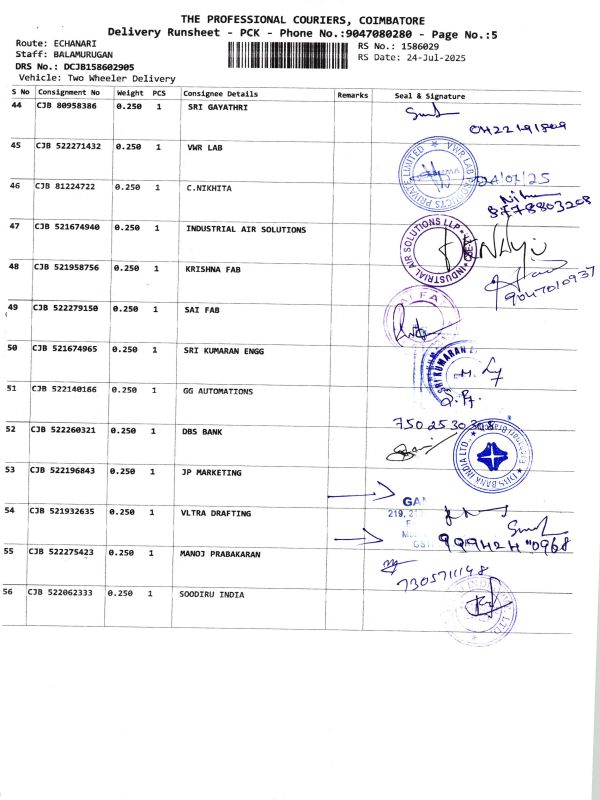 THE PROFESSIONAL COURIERS, COIMBATORE
Delivery Runsheet - PCK - Phone No.:9047080280 - Page No.:5
Route: ECHANARI
Staff: BALAMURUGAN
DRS No.: DCJB158602905
Vehicle: Two Wheeler Delivery
RS No.: 1586029
RS Date: 24-Jul-2025
S No Consignment No Weight PCS Consignee Details Remarks Seal & Signature
44 CJB 80958386 0.250 1 SRI GAYATHRI
45 CJB 522271432 0.250 1 VWR LAB
VWR LAB PRODUCTS PRIVATE LIMITED
46 CJB 81224722 0.250 1 C.NIKHITA
8778803208
47 CJB 521674940 0.250 1 INDUSTRIAL AIR SOLUTIONS
INDUSTRIAL AIR SOLUTIONS LLP
48 CJB 521958756 0.250 1 KRISHNA FAB
9047010937
49 CJB 522279150 0.250 1 SAI FAB
50 CJB 521674965 0.250 1 SRI KUMARAN ENGG
SRI KUMARAN
51 CJB 522140166 0.250 1 GG AUTOMATIONS
52 CJB 522260321 0.250 1 DBS BANK
DBS BANK INDIA LTD.
53 CJB 522196843 0.250 1 JP MARKETING
54 CJB 521932635 0.250 1 VLTRA DRAFTING
55 CJB 522275423 0.250 1 MANOJ PRABAKARAN
7305711148
56 CJB 522062333 0.250 1 SOODIRU INDIA